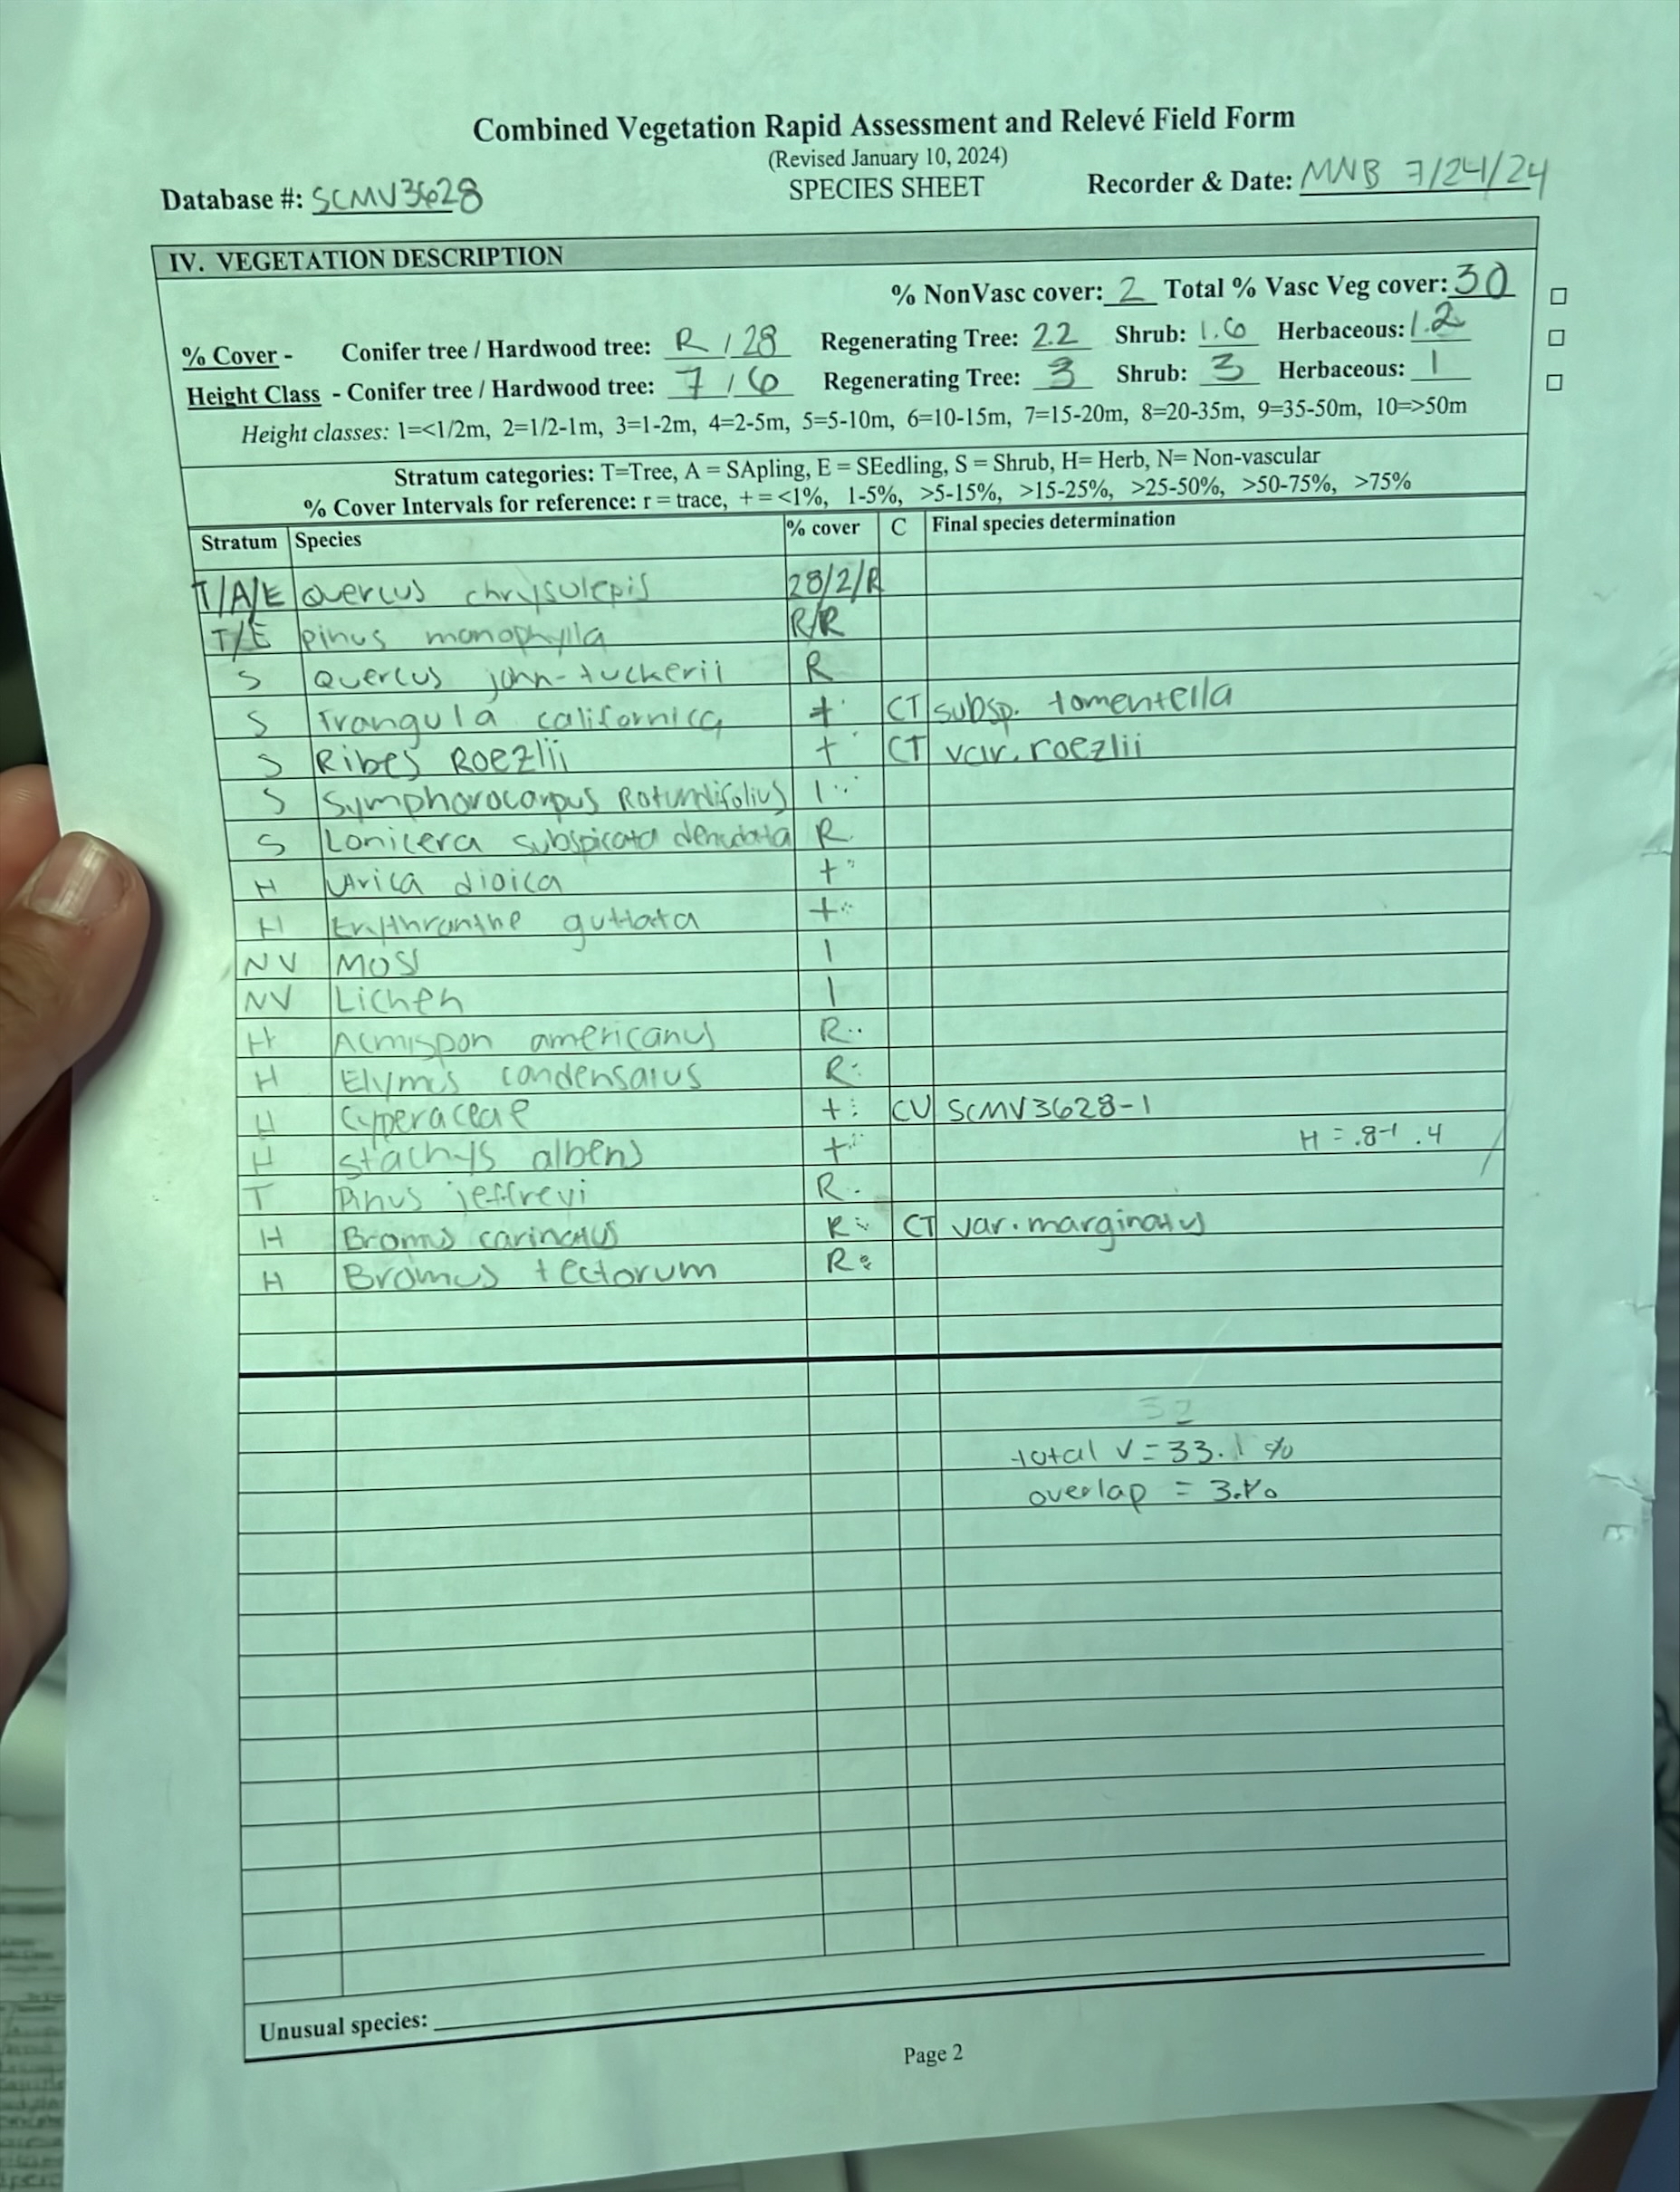 Combined Vegetation Rapid Assessment and Relevé Field Form
(Revised January 10, 2024)
Database #: SCMV3628 SPECIES SHEET Recorder & Date: MNB 7/24/24
IV. VEGETATION DESCRIPTION
% NonVasc cover: 2 Total % Vasc Veg cover: 30
% Cover - Conifer tree / Hardwood tree: R / 28 Regenerating Tree: 2.2 Shrub: 1.6 Herbaceous: 1.2
Height Class - Conifer tree / Hardwood tree: 7 / 6 Regenerating Tree: 3 Shrub: 3 Herbaceous: 1
Height classes: 1=<1/2m, 2=1/2-1m, 3=1-2m, 4=2-5m, 5=5-10m, 6=10-15m, 7=15-20m, 8=20-35m, 9=35-50m, 10=>50m
Stratum categories: T=Tree, A = SApling, E = SEedling, S = Shrub, H= Herb, N= Non-vascular
% Cover Intervals for reference: r = trace, + = <1%, 1-5%, >5-15%, >15-25%, >25-50%, >50-75%, >75%
Stratum Species % cover C Final species determination
T/A/E Quercus chrysolepis 28/2/R
T/E pinus monophylla R/R
S Quercus john-tuckerii R
S Frangula californica + CT subsp. tomentella
S Ribes Roezlii + CT var. roezlii
S Symphorocarpus Rotundifolius 1
S Lonicera subspicata denudata R
H Urica dioica +
H Erythranthe guttata +
NV Moss 1
NV Lichen 1
H Acmispon americanus R
H Elymus condensatus R
H Cyperaceae + CV SCMV3628-1
H = .8-1 .4
H stachys albens +
T Pinus jeffreyi R
H Bromus carinatus R CT var. marginatus
H Bromus tectorum R
32
total V = 33.1 %
overlap =
Unusual species:
Page 2